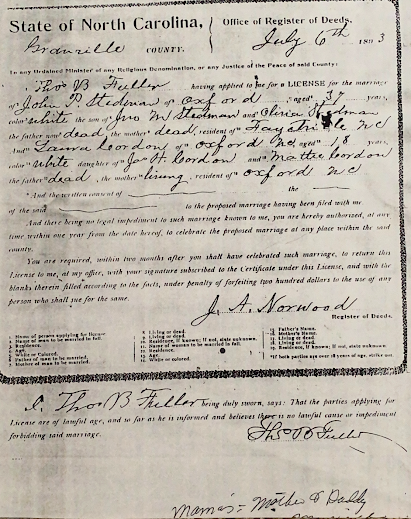 State of North Carolina,
Office of Register of Deeds,
Granville COUNTY.
July 6th 1893
To any Ordained Minister of any Religious Denomination, or any Justice of the Peace of said County:
Thos B Fuller having applied to me for a LICENSE for the marriage
of John P. Stedman of Oxford aged 37 years,
color white the son of Jno M Stedman and Olivia Stedman
the father now dead, the mother dead, resident of Fayetteville NC
And Laura Cordon of Oxford NC aged 18 years,
color white daughter of Jn H. Cordon and Mattie Cordon
the father dead, the mother living, resident of Oxford NC
*And the written consent of the
of the said to the proposed marriage having been filed with me
And there being no legal impediment to such marriage known to me, you are hereby authorized, at any
time within one year from the date hereof, to celebrate the proposed marriage at any place within the said
county.
You are required, within two months after you shall have celebrated such marriage, to return this
License to me, at my office, with your signature subscribed to the Certificate under this License, and with the
blanks therein filled according to the facts, under penalty of forfeiting two hundred dollars to the use of any
person who shall sue for the same.
J. A. Norwood
Register of Deeds.
1. Name of person applying for license.
2. Name of man to be married in full.
3. Residence.
4. Age.
5. White or Colored.
6. Father of man to be married.
7. Mother of man to be married.
8. Living or dead.
9. Living or dead.
10. Residence, if known; if not, state unknown.
11. Name of woman to be married in full.
12. Residence.
13. Age.
14. White or colored.
15. Father's Name.
16. Mother's Name.
17. Living or dead.
18. Living or dead.
19. Residence, if known; if not, state unknown.
*If both parties are over 18 years of age, strike out
I, Thos B Fuller being duly sworn, says: That the parties applying for
License are of lawful age, and so far as he is informed and believes there is no lawful cause or impediment
forbidding said marriage.
Thos B Fuller
Mama's - Mother & Daddy